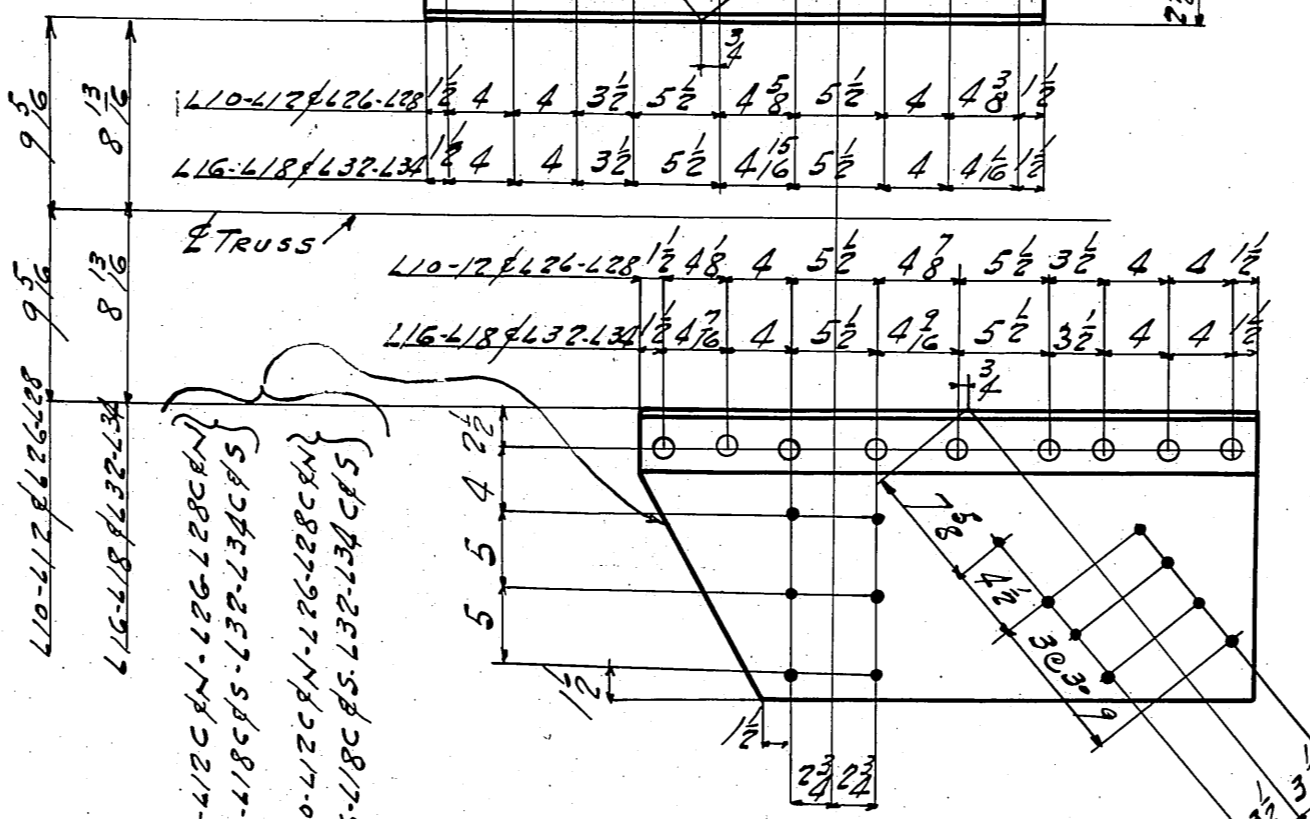 2 1/2
3/4
L10-L12 & L26-L28 1 1/2 4 4 3 1/2 5 1/2 4 5/8 5 1/2 4 4 3/8 1 1/2
L16-L18 & L32-L34 1 1/2 4 4 3 1/2 5 1/2 4 15/16 5 1/2 4 4 1/16 1 1/2
9 5/16 8 13/16
℄ TRUSS
L10-12 & L26-L28 1 1/2 4 1/8 4 5 1/2 4 7/8 5 1/2 3 1/2 4 4 1 1/2
L16-L18 & L32-L34 1 1/2 4 7/16 4 5 1/2 4 9/16 5 1/2 3 1/2 4 4 1 1/2
9 5/16 8 13/16
3/4
L10-L12 & L26-L28
L16-L18 & L32-L34
-L12C&N-L26-L28C&N
-L18C&S-L32-L34C&S
0-L12C&N-L26-L28C&N
-L18C&S-L32-L34C&S
2 1/2
4
5
5
1 1/2
7 5/8
4 1/2
3@3=9
1 1/2
2 3/4 2 3/4
3 1/2